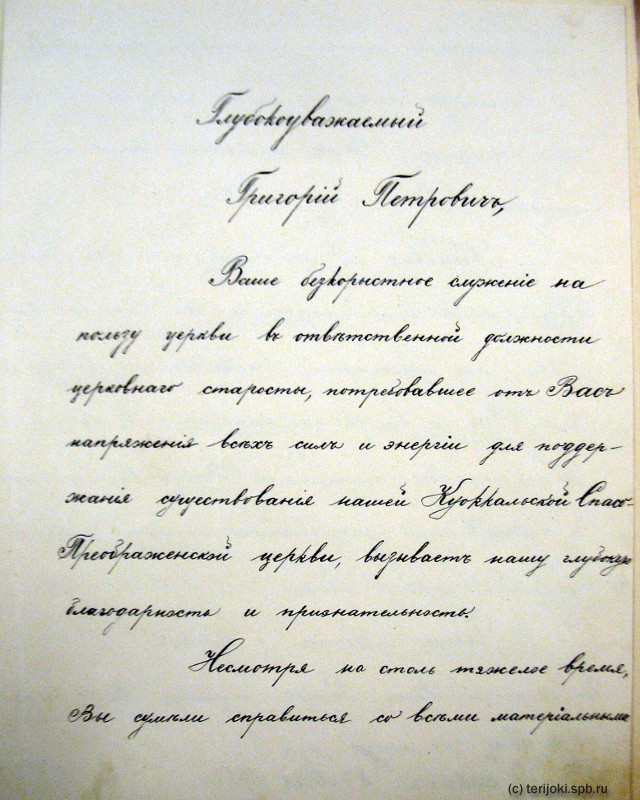 Глубокоуважаемый
Григорій Петровичъ,
Ваше безкорыстное служеніе на
пользу церкви въ отвѣтственной должности
церковнаго старосты, потребовавшее отъ Васъ
напряженія всѣхъ силъ и энергіи для поддер-
жанія существованія нашей Куоккальской Спасо-
Преображенской церкви, вызываетъ нашу глубокую
благодарность и признательность.
Несмотря на столь тяжелое время,
Вы сумѣли справиться со всѣми матеріальными
(c) terijoki.spb.ru